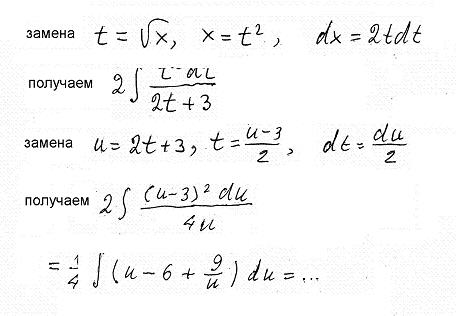 замена t = √x, x = t², dx = 2tdt
получаем 2∫ / 2t + 3
замена u = 2t + 3, t = (u-3)/2, dt = du/2
получаем 2∫ (u-3)² du / 4u
= 1/4 ∫ (u - 6 + 9/u) du = ...